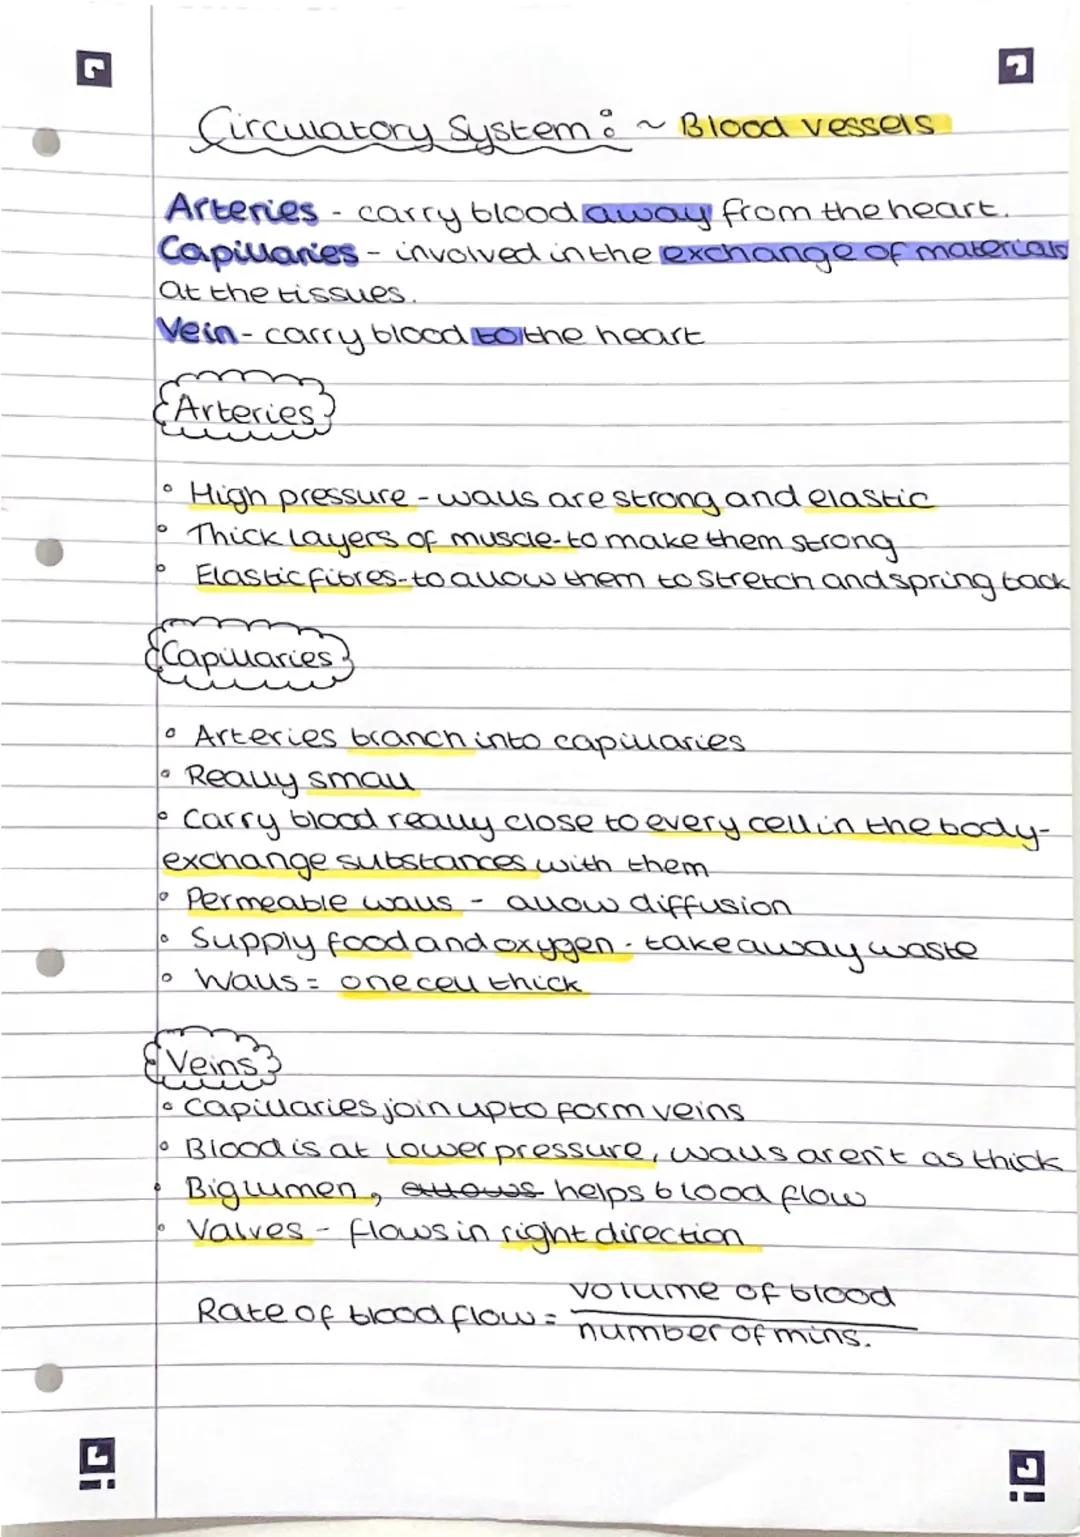 Circulatory System: ~ Blood vessels
Arteries - carry blood away from the heart.
Capillaries - involved in the exchange of materials
at the tissues.
Vein - carry blood to the heart
Arteries
• High pressure - walls are strong and elastic
• Thick layers of muscle - to make them strong
• Elastic fibres - to allow them to stretch and spring back
Capillaries
• Arteries branch into capillaries
• Really small
• Carry blood really close to every cell in the body -
exchange substances with them
• Permeable walls - allow diffusion
• Supply food and oxygen - take away waste
• Walls = one cell thick
Veins
• Capillaries join up to form veins
• Blood is at lower pressure, walls aren't as thick
• Big lumen, allows helps blood flow
• Valves - flows in right direction
Rate of blood flow = volume of blood
number of mins.